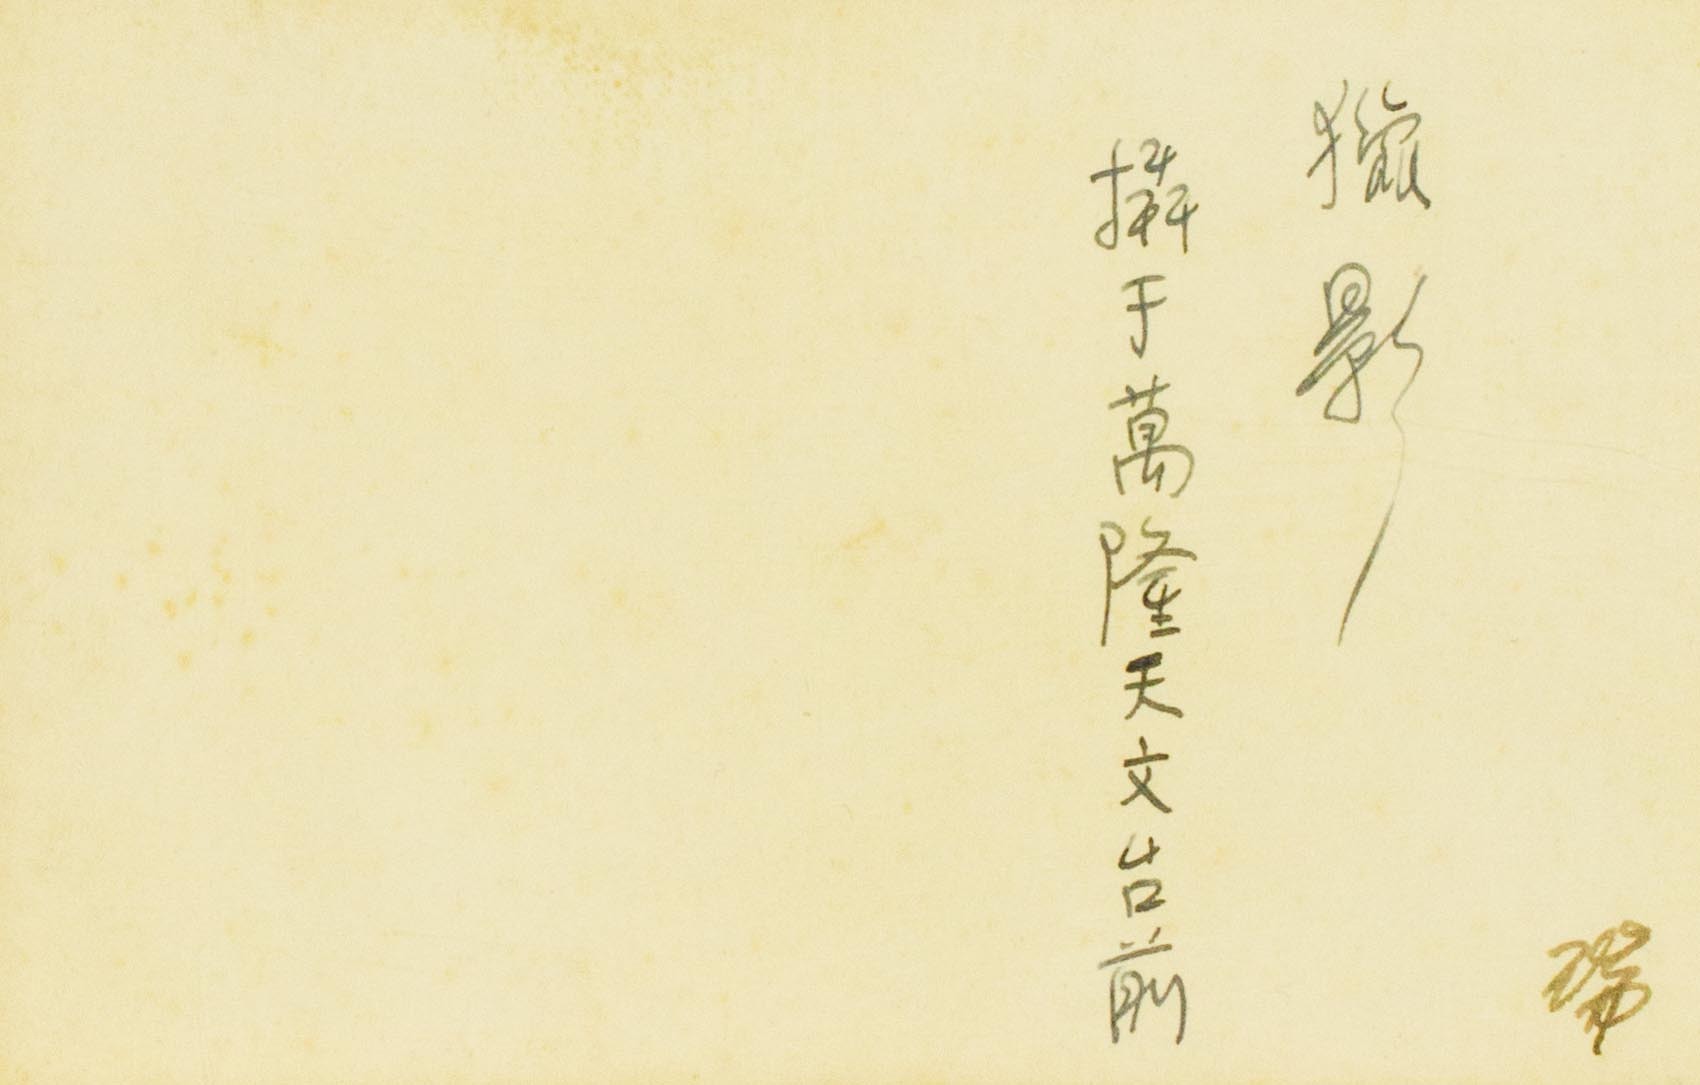 獵影
攝于萬隆天文台前
瑞